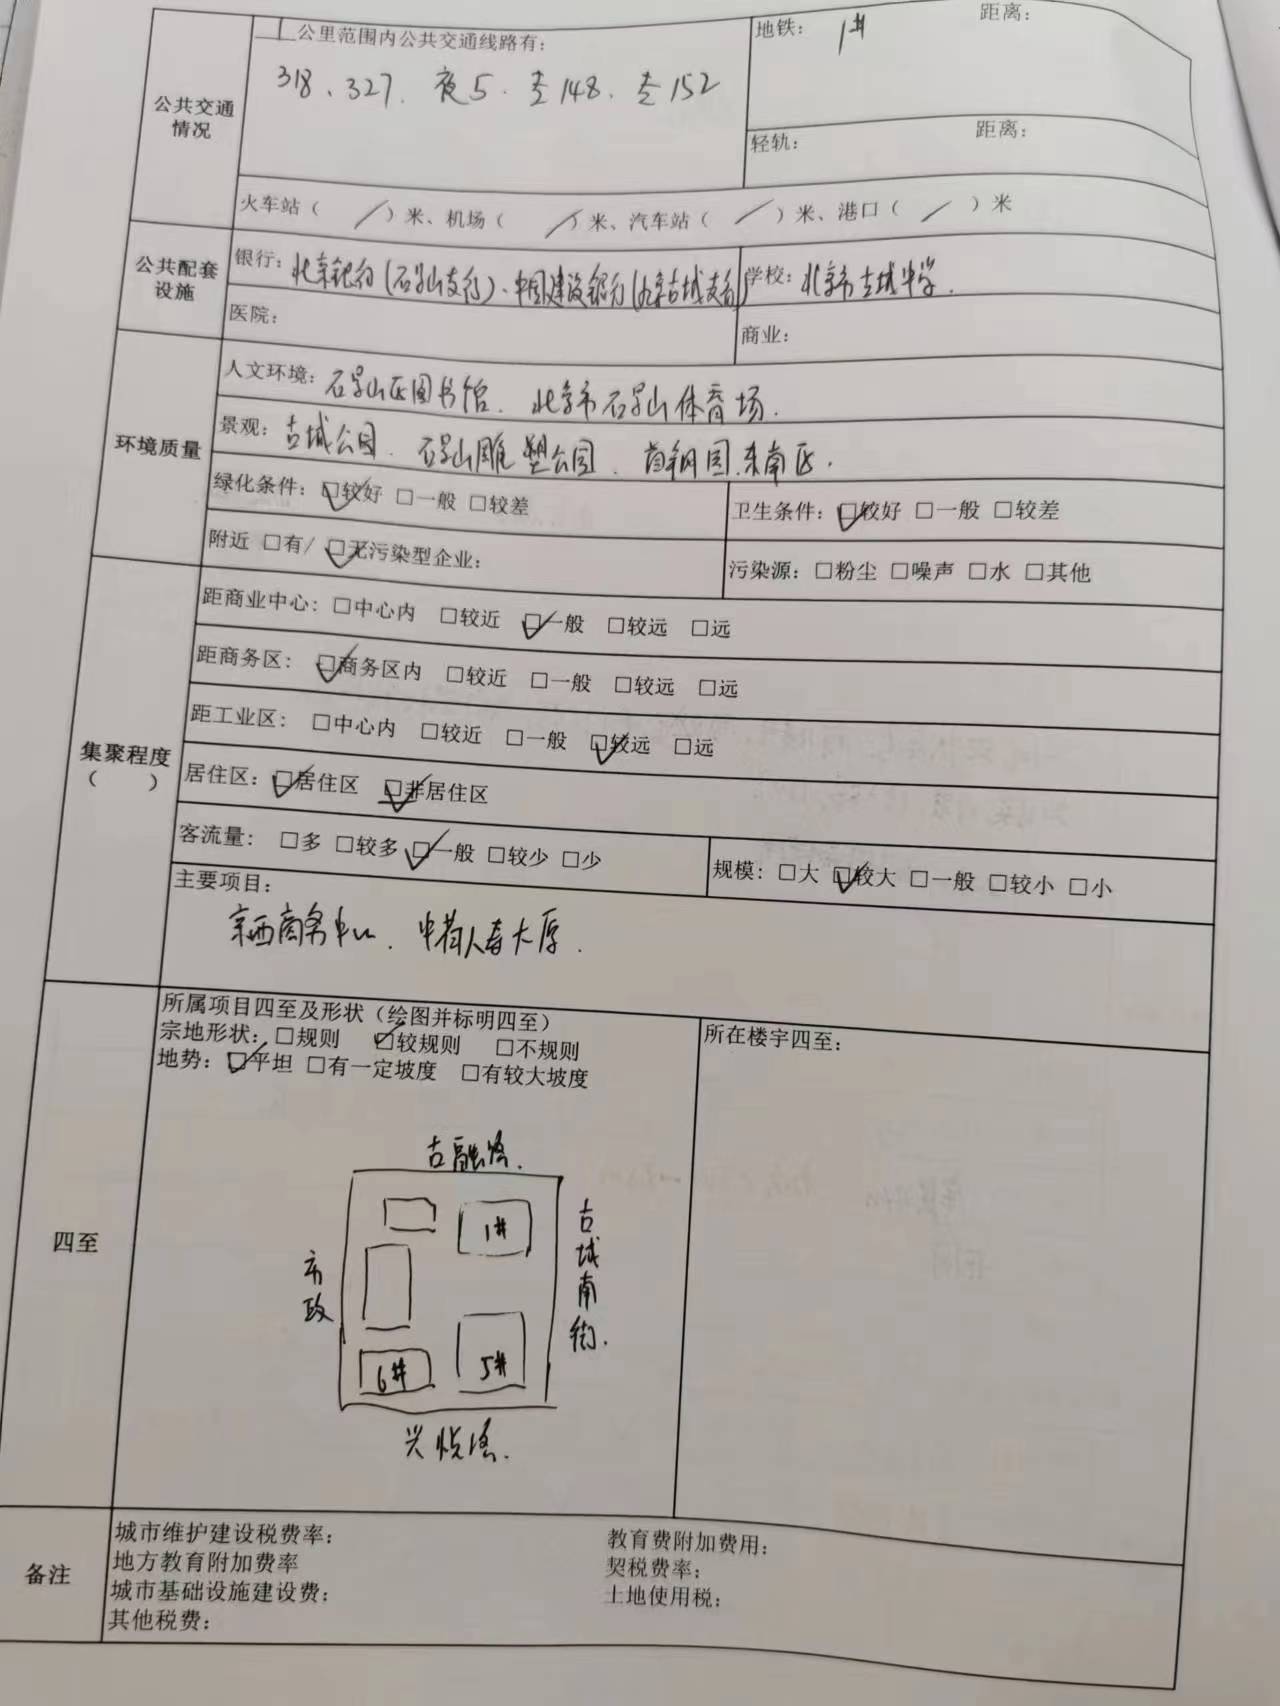 公共交通情况
公里范围内公共交通线路有:
318、327、夜5、专148、专152
地铁: 1# 距离:
轻轨: 距离:
火车站( / )米、机场( / )米、汽车站( / )米、港口( / )米
公共配套设施
银行: 北京银行(石景山支行)、中国建设银行(北京古城支行)
学校: 北京市古城中学.
医院:
商业:
环境质量
人文环境: 石景山区图书馆、北京市石景山体育场.
景观: 古城公园、石景山雕塑公园、首钢园东南区.
绿化条件: ☑较好 □一般 □较差
卫生条件: ☑较好 □一般 □较差
附近 □有/ ☑无污染型企业:
污染源: □粉尘 □噪声 □水 □其他
集聚程度
( )
距商业中心: □中心内 □较近 ☑一般 □较远 □远
距商务区: ☑商务区内 □较近 □一般 □较远 □远
距工业区: □中心内 □较近 □一般 ☑较远 □远
居住区: ☑居住区 ☑非居住区
客流量: □多 □较多 ☑一般 □较少 □少
规模: □大 ☑较大 □一般 □较小 □小
主要项目:
京西商务中心、中海人寿大厦.
四至
所属项目四至及形状(绘图并标明四至)
宗地形状: □规则 ☑较规则 □不规则
地势: ☑平坦 □有一定坡度 □有较大坡度
所在楼宇四至:
古融路.
1#
古城南街.
市政
6#
5#
兴悦路.
备注
城市维护建设税费率:
教育费附加费用:
地方教育附加费率
契税费率:
城市基础设施建设费:
土地使用税:
其他税费: